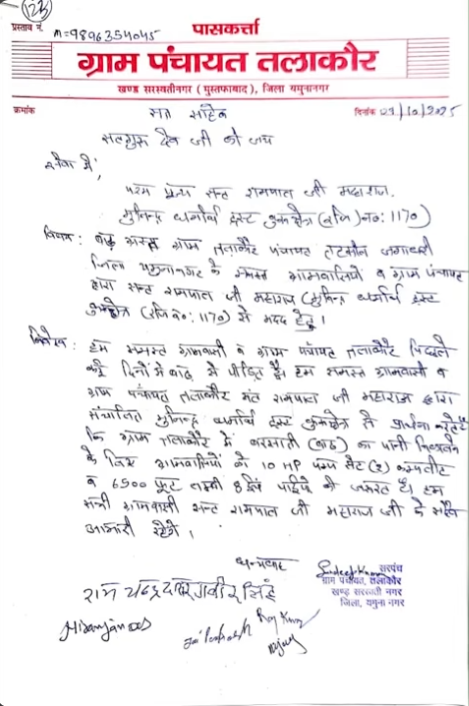 (123)
पासकर्त्ता
प्रस्ताव नं. m=9896354045
ग्राम पंचायत तलाकौर
खण्ड सरस्वतीनगर (मुस्तफाबाद), जिला यमुनानगर
क्रमांक दिनांक 09/10/2025
सत साहिब
सतगुरू देव जी की जय
सेवा में,
परम पूज्य सन्त रामपाल जी महाराज,
मुनिन्द्र धर्मार्थ ट्रस्ट कुरुक्षेत्र (रजि० नं०: 1170)
विषय: बाढ़ ग्रस्त ग्राम तलाकौर पंचायत तहसील जगाधरी
जिला यमुनानगर के समस्त ग्रामवासियों व ग्राम पंचायत
द्वारा सन्त रामपाल जी महाराज (मुनिन्द्र धर्मार्थ ट्रस्ट
कुरुक्षेत्र (रजि नं०: 1170) से मदद हेतु।
निवेदन: हम समस्त ग्रामवासी व ग्राम पंचायत तलाकौर पिछले
कई दिनों से बाढ़ से पीड़ित है। हम समस्त ग्रामवासी व
ग्राम पंचायत तलाकौर संत रामपाल जी महाराज द्वारा
संचालित मुनिन्द्र धर्मार्थ ट्रस्ट कुरुक्षेत्र से प्रार्थना करते है
कि ग्राम तलाकौर में बरसाती (बाढ़) का पानी निकालने
के लिए ग्रामवासियों को 10 HP पम्प सैट (2) कम्पलीट
व 6500 फूट लम्बी 8 इंच पाईप की जरूरत है। हम
सभी ग्रामवासी सन्त रामपाल जी महाराज जी के सदैव
आभारी रहेंगे।
धन्यवाद
Sandeep Kumar सरपंच
ग्राम पंचायत, तलाकौर
खण्ड सरस्वती नगर
जिला, यमुना नगर
Raj Kumar